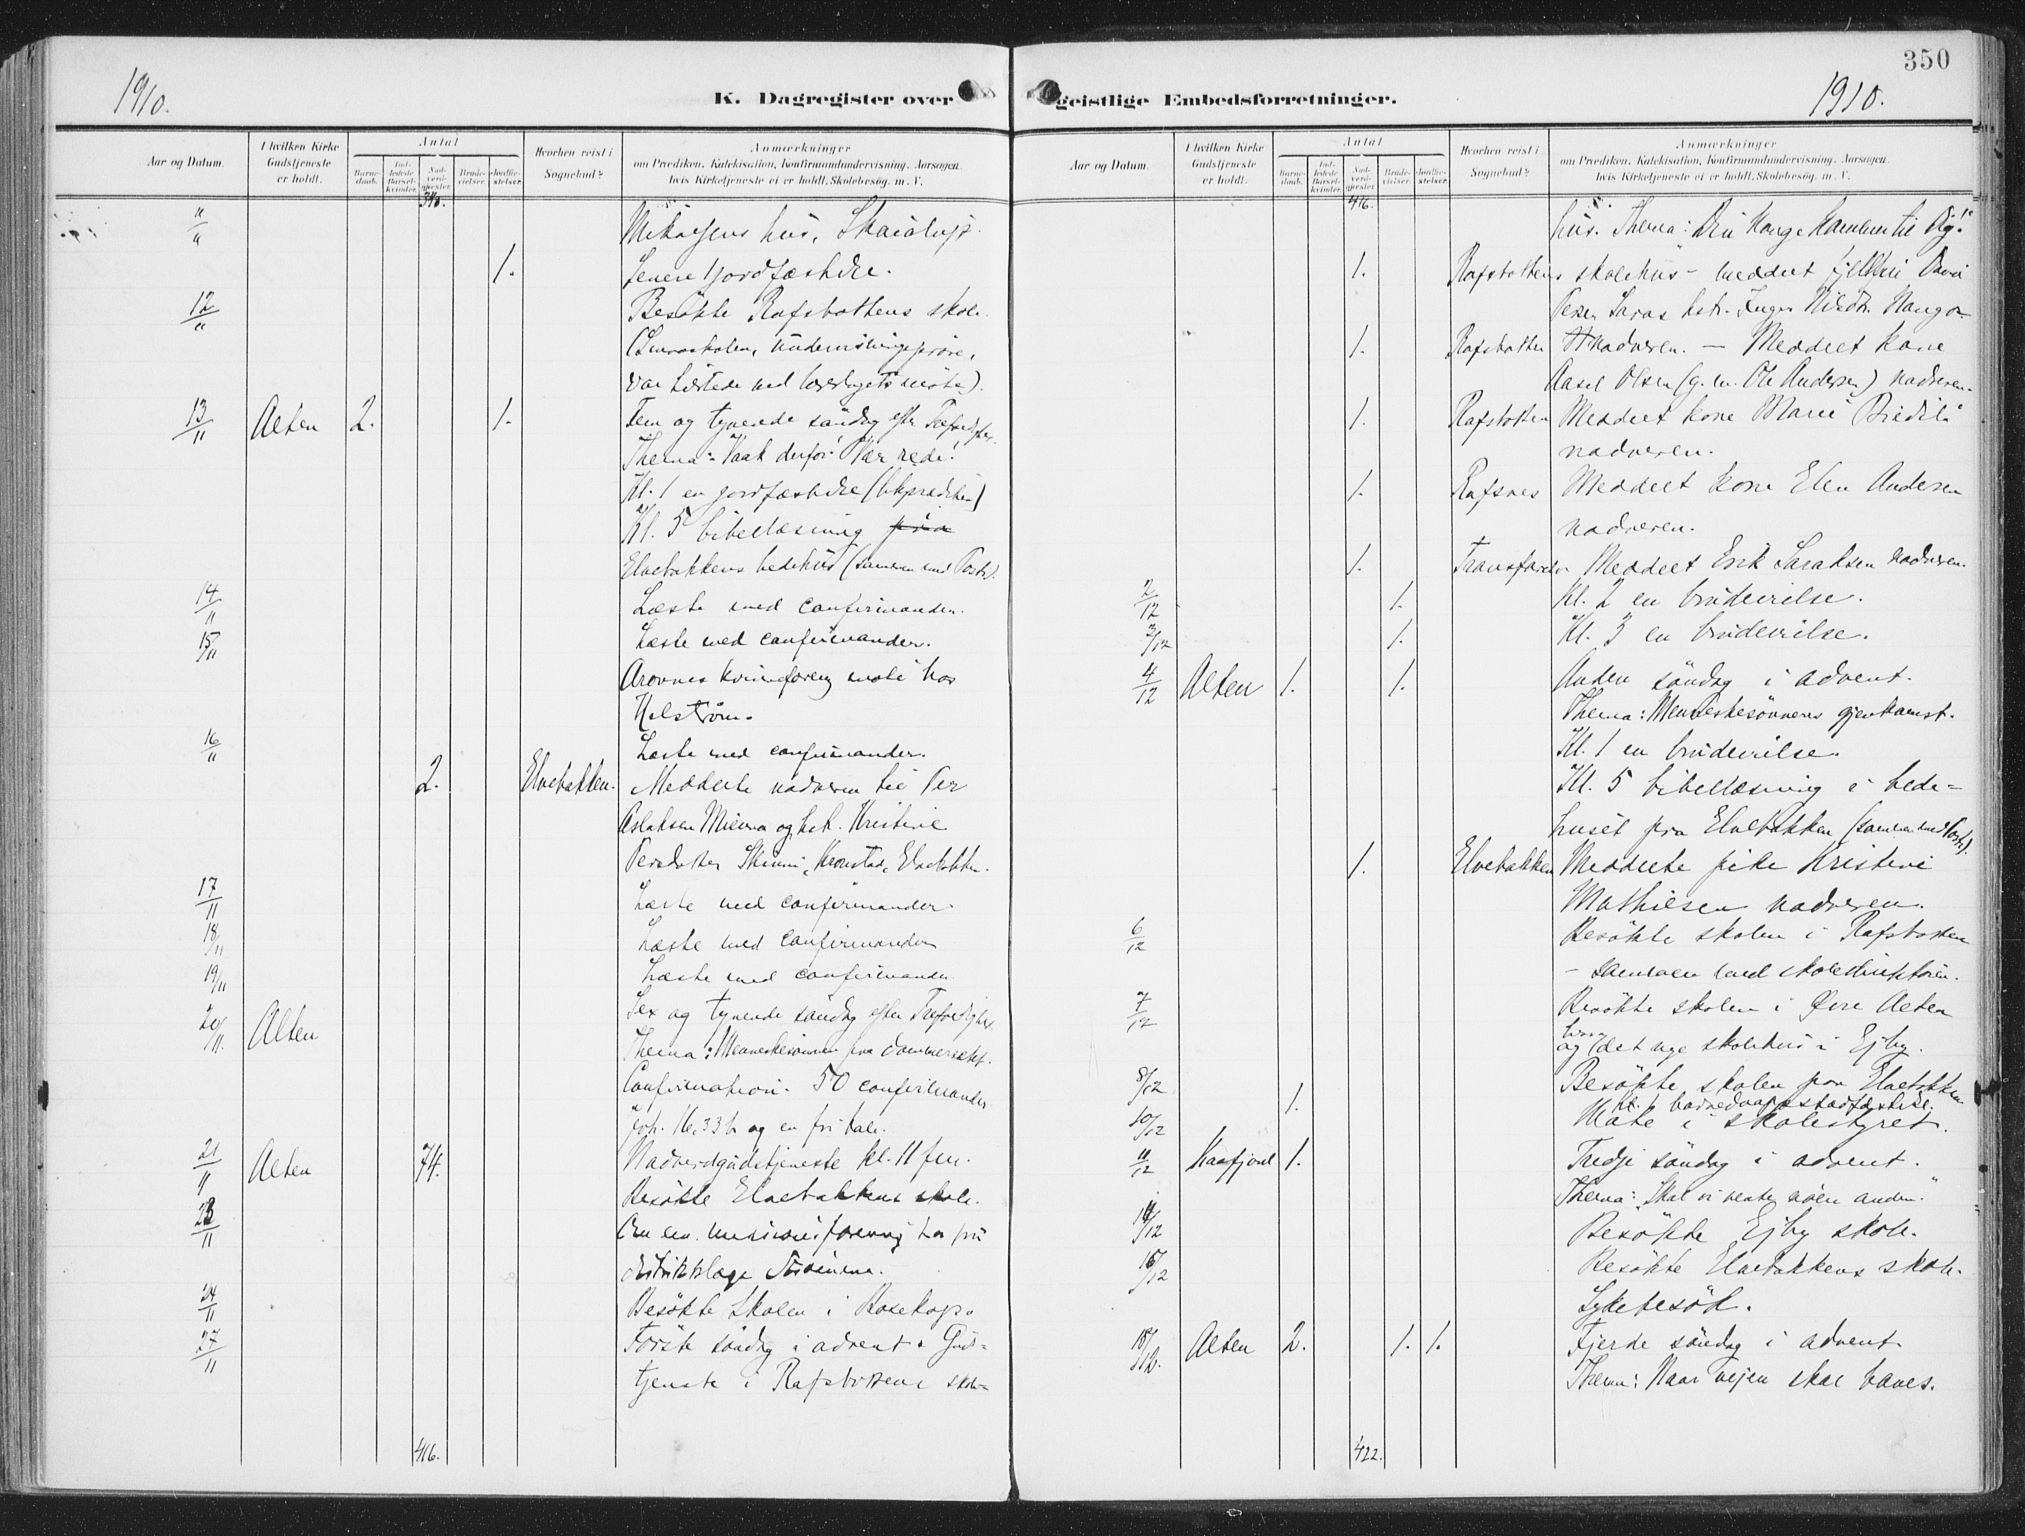 350
1910.
K. Dagregister over
Aar og Datum.
I hvilken Kirke Gudstjeneste er holdt.
Antal
Barnedaab.
Indledede Barselkvinder.
Nadverdgjester.
Brudevielser.
Jordfæstelser.
Hvorhen reist i Sognebud?
Anmærkninger
om Prædiken, Katekisation, Konfirmandundervisning, Aarsagen,
hvis Kirketjeneste ei er holdt, Skolebesøg, m. V.
340.
11/11 Mikalsens hus,
1. Senere 1 jordfæstelse.
12/11 Besökte Rafsbottens skole.
(Smaaskolen, undervisningsprøve,
13/11 Alten 2. 1. Fem og tyvende söndag efter Trefoldighet.
Thema: Vaak derfor! Vær rede!
Kl. 1 en jordfæstelse (likprædiken)
Kl. 5 bibellæsning
Elvebakkens bedehus (sammen med
14/11 Læste med confirmander.
15/11 Læste med confirmander.
Aronnes kvindeforeng möte hos
Helström.
16/11 Læste med confirmander.
2. Elvebakken. Meddelte nadveren til Per
Aslaksen og hst. Kristine
Persdatter Elvebakken.
17/11 Læste med confirmander.
18/11 Læste med confirmander
19/11 Læste med confirmander.
20/11. Alten Sex og tyvende söndag efter Trefoldighet.
Thema: Menneskesönnen paa dommersædet.
Confirmation. 50 confirmander.
Joh. 16,33b og en fri tale.
21/11 Alten 74. Nadverdgudstjeneste kl. 11 fm.
Besökte Elvebakkens skole.
23/11 missionsforening hos fru
distriktslæge
24/11 Besökte skolen i Bosekop.
27/11 Förste söndag i advent. Guds-
tjeneste i Rafsbottens skole-
416.
geistlige Embedsforretninger.
1910.
Aar og Datum.
I hvilken Kirke Gudstjeneste er holdt.
Antal
Barnedaab.
Indledede Barselkvinder.
Nadverdgjester.
Brudevielser.
Jordfæstelser.
Hvorhen reist i Sognebud?
Anmærkninger
om Prædiken, Katekisation, Konfirmandundervisning, Aarsagen,
hvis Kirketjeneste ei er holdt, Skolebesøg, m. V.
416.
hus. Thema: Din Konge kommer til Dig!
1. Rafsbottens skolehus – meddelt
Inger Nilsdtr.
1. Rafsbotten nadveren. – Meddelt kone
Olsen (g. m. Ole Andersen) nadveren.
1. Rafsbotten Meddelt kone Marie
nadveren.
1. Rafsnes Meddelt kone Elen Andersen
nadveren.
1. Transfarelv Meddelt Erik nadveren.
2/12 1. Kl. 2 en brudevielse.
3/12 1. Kl. 3 en brudevielse.
4/12 Alten 1. 1. Anden söndag i advent.
Thema: Menneskesönnens gjenkomst.
Kl. 1 en brudevielse.
Kl. 5 bibellæsning i bede-
huset paa Elvebakken (sammen med
1. Elvebakken Meddelte pike Kristine
Mathisen nadveren.
6/12 Besökte skolen i Rafsbotten
– sammen med skoledirektören.
7/12 Besökte skolen i Øvre Alten
og det nye skolehus i Ejby.
8/12 Besökte skolen paa Elvebakken
1. kl. 1 barnedaapsstadfæstelse.
10/12 Möte i skolestyret.
11/12 Kaafjord 1. Tredje söndag i advent.
Thema: "Skal vi vente nöen anden."
14/12 Besökte Ejby skole.
16/12 Besökte Elvebakkens skole.
Sykebesök.
18/12. Alten 2. 1. 1. Fjerde söndag i advent.
Thema: Naar vejen skal banes.
422.